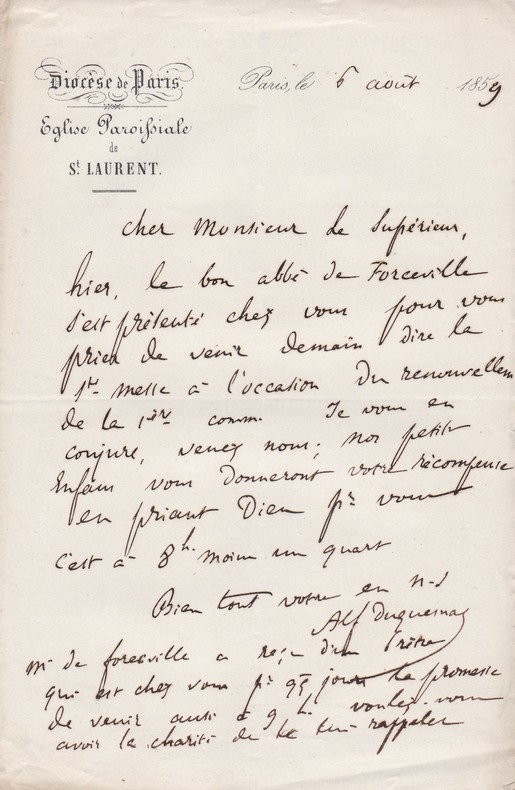 Diocèse de Paris.
Paris, le 6 août 1859
Eglise Paroissiale
de
St LAURENT.
Cher Monsieur Le Supérieur,
hier, le bon abbé de Forceville
s'est présenté chez vous pour vous
prier de venir demain dire la
1re messe à l'occasion du renouvellem
de la 1ère comm. Je vous en
conjure, venez nous; nos petits
Enfans vous donneront votre récompense
en priant Dieu pr vous
c'est à 8h. moins un quart
Bien tout votre en n-s
Alf Duquesnay
Mr de forceville a reçu d'un Prêtre
qui est chez vous pr jours la promesse
de venir aussi à 9h. voulez-vous
avoir la charité de le lui rappeler